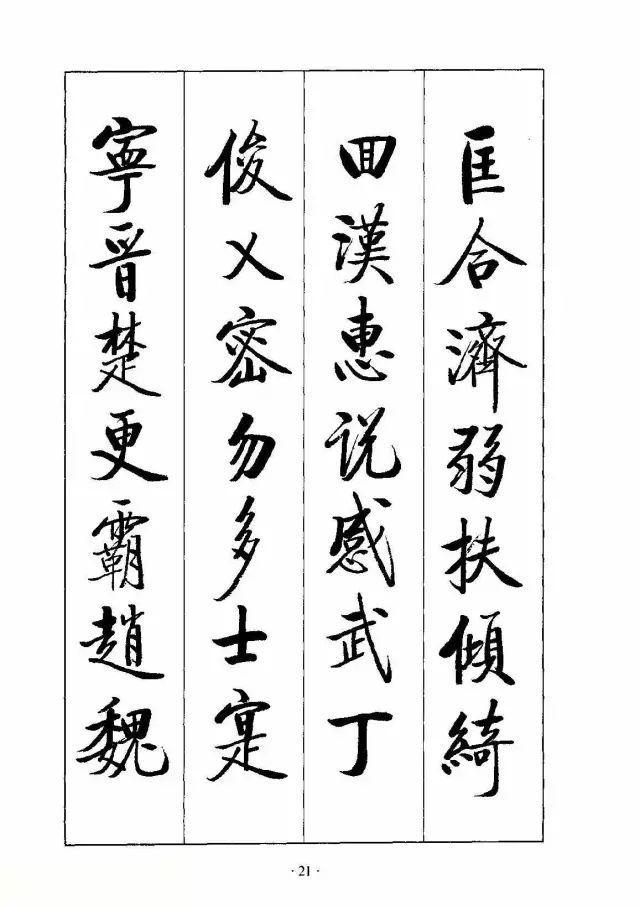 匡合濟弱扶傾綺
回漢惠说感武丁
俊乂密勿多士寔
寧晉楚更霸趙魏
· 21 ·